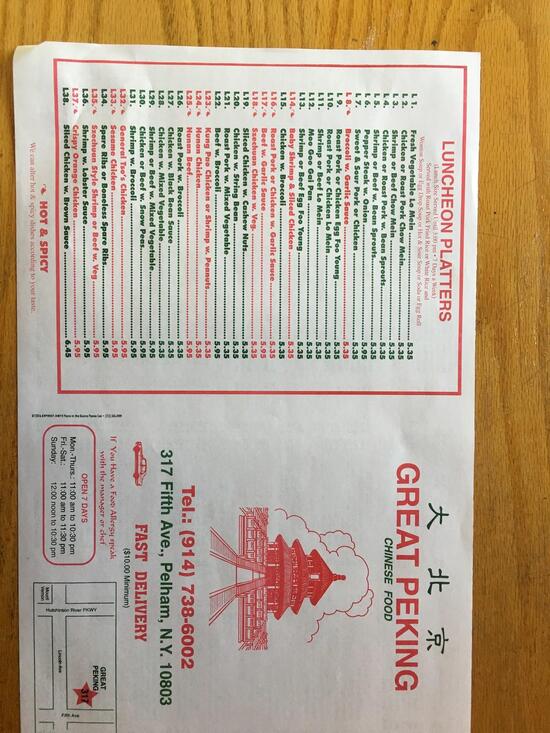 LUNCHEON PLATTERS
(Lunch Box Served Until 3:00 pm • 7 Days a Week)
Served with Roast Pork Fried Rice or White Rice and
Wonton Soup or Egg Drop Soup or Hot & Sour Soup or Soda or Egg Roll
L 1. Fresh Vegetable Lo Mein 5.35
L 2. Chicken or Roast Pork Chow Mein 5.35
L 3. Shrimp or Beef Chow Mein 5.35
L 4. Chicken or Roast Pork w. Bean Sprouts 5.35
L 5. Shrimp or Beef w. Bean Sprouts 5.35
L 6. Pepper Steak w. Onion 5.95
L 7. Sweet & Sour Pork or Chicken 5.35
L 8. Broccoli w. Garlic Sauce 5.35
L 9. Roast Pork or Chicken Egg Foo Young 5.35
L10. Roast Pork or Chicken Lo Mein 5.35
L11. Shrimp or Beef Lo Mein 5.35
L12. Moo Goo Gai Pan 5.35
L13. Shrimp or Beef Egg Foo Young 5.35
L14. Baby Shrimp & Sliced Chicken 5.35
L15. Chicken w. Broccoli 5.35
L16. Roast Pork or Chicken w. Garlic Sauce 5.35
L17. Beef w. Garlic Sauce 5.95
L18. Szechuan Style Chicken w. Veg. 5.35
L19. Sliced Chicken w. Cashew Nuts 5.35
L20. Chicken w. String Bean 5.35
L21. Roast Pork w. Mixed Vegetable 5.35
L22. Beef w. Broccoli 5.95
L23. Kung Pao Chicken or Shrimp w. Peanuts 5.35
L24. Hunan Chicken 5.35
L25. Hunan Beef 5.95
L26. Roast Pork w. Broccoli 5.35
L27. Chicken w. Black Bean Sauce 5.35
L28. Chicken w. Mixed Vegetable 5.35
L29. Shrimp or Beef w. Mixed Vegetable 5.95
L30. Chicken w. Snow Peas 5.35
L31. Shrimp w. Broccoli 5.95
L32. General Tso's Chicken 5.95
L33. Sesame Chicken 5.95
L34. Spare Ribs or Boneless Spare Ribs 5.95
L35. Szechuan Style Shrimp or Beef w. Veg 5.95
L36. Shrimp w. Lobster Sauce 5.95
L37. Crispy Orange Chicken 5.95
L38. Sliced Chicken w. Brown Sauce 6.45
HOT & SPICY
We can alter hot & spicy dishes according to your taste.
大北京
GREAT PEKING
CHINESE FOOD
Tel.: (914) 738-6002
317 Fifth Ave., Pelham, N.Y. 10803
FAST DELIVERY
($10.00 Minimum)
If You Have a Food Allergy speak
with the manager or chef
OPEN 7 DAYS
Mon.-Thurs.: 11:00 am to 10:30 pm
Fri.-Sat.: 11:00 am to 11:30 pm
Sunday: 12:00 noon to 10:30 pm
GREAT
PEKING
317
Fifth Ave
Lincoln Ave
Hutchinson River PKWY
Mount
Vernon